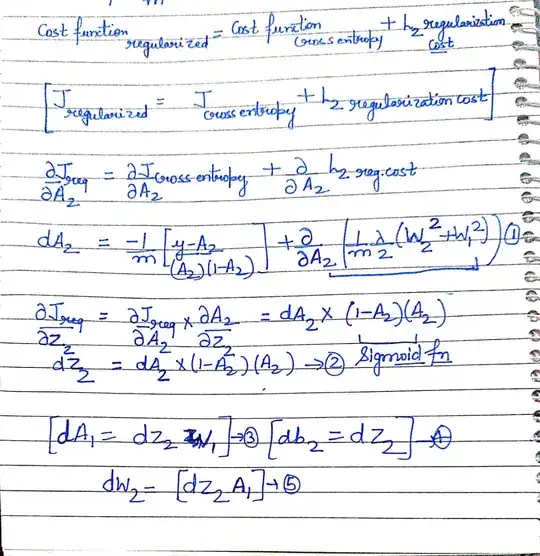 Cost function regularized = Cost function cross entropy + L2 regularization cost
[J regularized = J cross entropy + L2 regularization cost]
∂Jreg/∂A2 = ∂J cross entropy/∂A2 + ∂/∂A2 L2 reg. cost
dA2 = -1/m [y-A2/(A2)(1-A2)] + ∂/∂A2 [1/m λ/2 (W2² + W1²)] ①
∂Jreg/∂Z2 = ∂Jreg/∂A2 × ∂A2/∂Z2 = dA2 × (1-A2)(A2)
dZ2 = dA2 × (1-A2)(A2) → ② Sigmoid fn
[dA1 = dZ2 W1] → ③ [db2 = dZ2] → ④
dW2 = [dZ2 A1] → ⑤